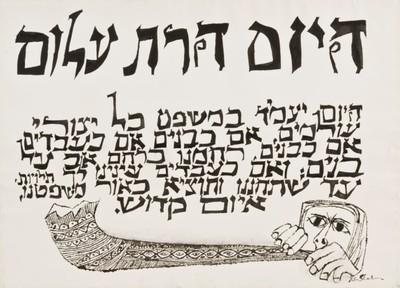 היום הרת עולם
היום יעמיד במשפט כל יצורי
עולמים. אם כבנים אם כעבדים
אם כבנים רחמנו כרחם אב על
בנים: ואם כעבדים עינינו לך תלויות.
עד שתחננו ותוציא כאור משפטנו,
איום קדוש.